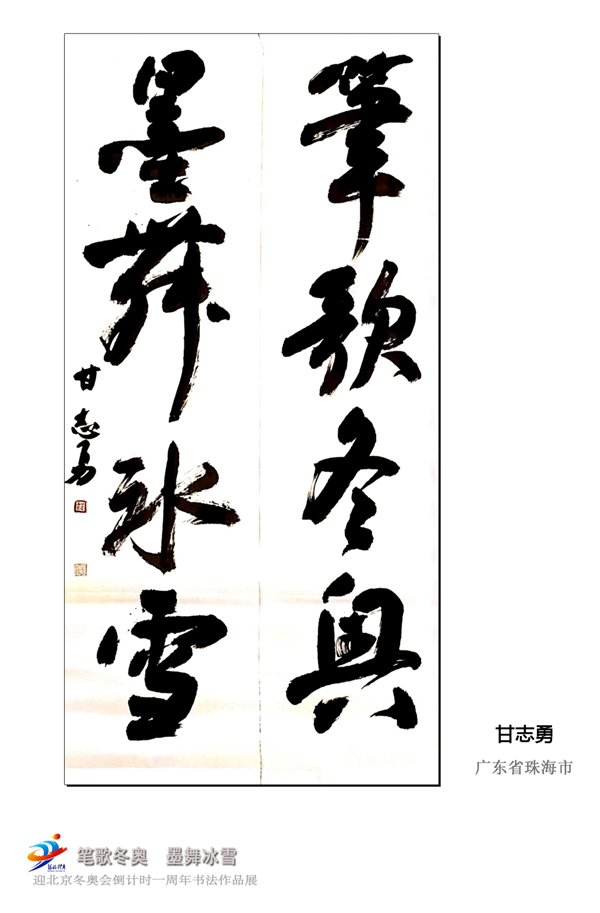 筆歌冬奥
墨舞冰雪
甘志勇
甘志勇
广东省珠海市
笔歌冬奥 墨舞冰雪
迎北京冬奥会倒计时一周年书法作品展